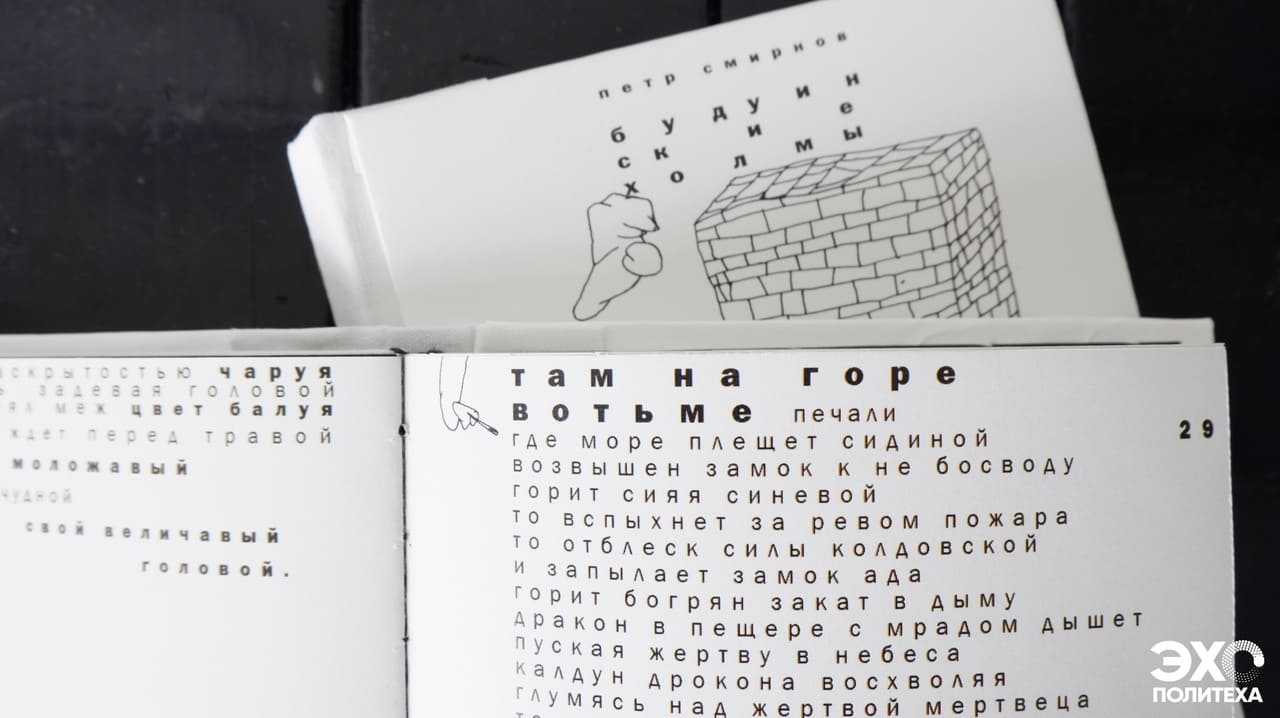 петр смирнов
бедуинские
холмы
чаруя
задевая головой
меж цвет балуя
ждет перед травой
моложавый
чудной
свой величавый
головой.
там на горе
вотьме печали
29
где море плещет сидиной
возвышен замок к не босводу
горит сияя синевой
то вспыхнет за ревом пожара
то отблеск силы колдовской
и запылает замок ада
горит богрян закат в дыму
дракон в пещере с мрадом дышет
пуская жертву в небеса
калдун дрокона восхволяя
глумясь над жертвой мертвеца
ЭХО
ПОЛИТЕХА